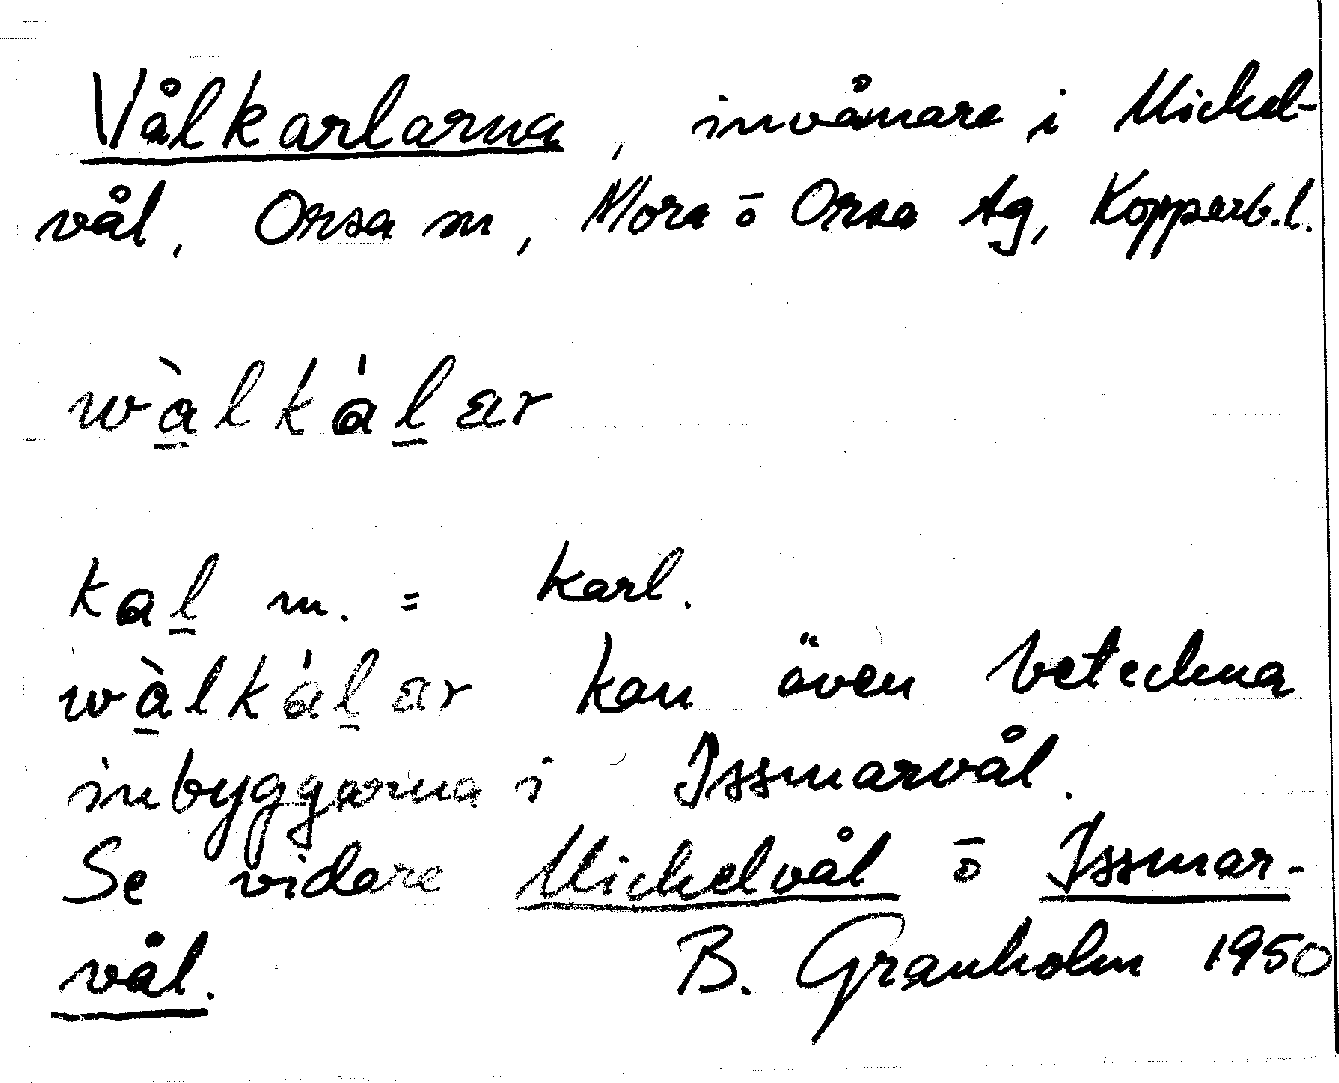 Vålkarlarna, invånare i Mickel-
vål, Orsa sn, Mora ō Orsa tg, Kopparb.l.
wà̲lká̲l̲ar
kal̲ m. = karl.
wà̲lkál̲ar kan även beteckna
inbyggarna i Issmarvål.
Se vidare Mickelvål ō Issmar-
vål. B. Granholm 1950